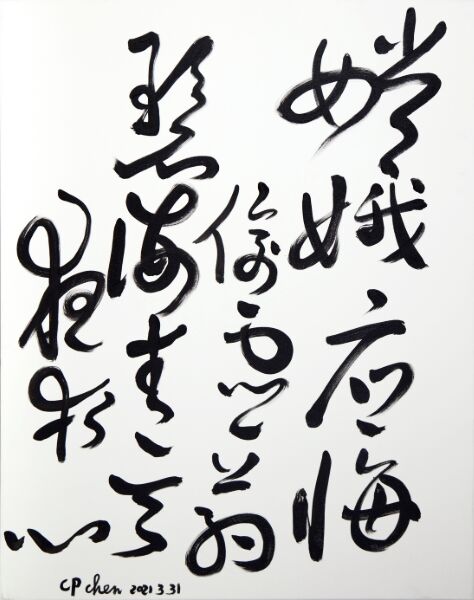 嫦娥应悔
偷灵药
碧海青天
夜夜心
CP chen 2021.3.31